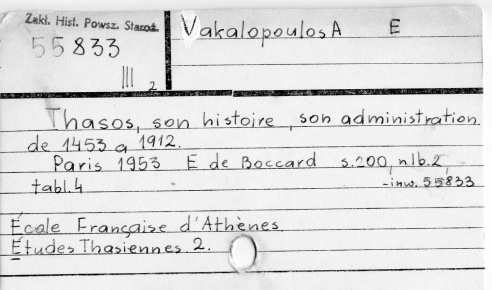 Zakł. Hist. Powsz. Staroż.
55833
III 2
Vakalopoulos A E
Thasos, son histoire, son administration
de 1453 a 1912.
Paris 1953 E de Boccard s.200, nlb.2,
tabl.4 -inw. 55833
École Française d'Athènes
Études Thasiennes 2.